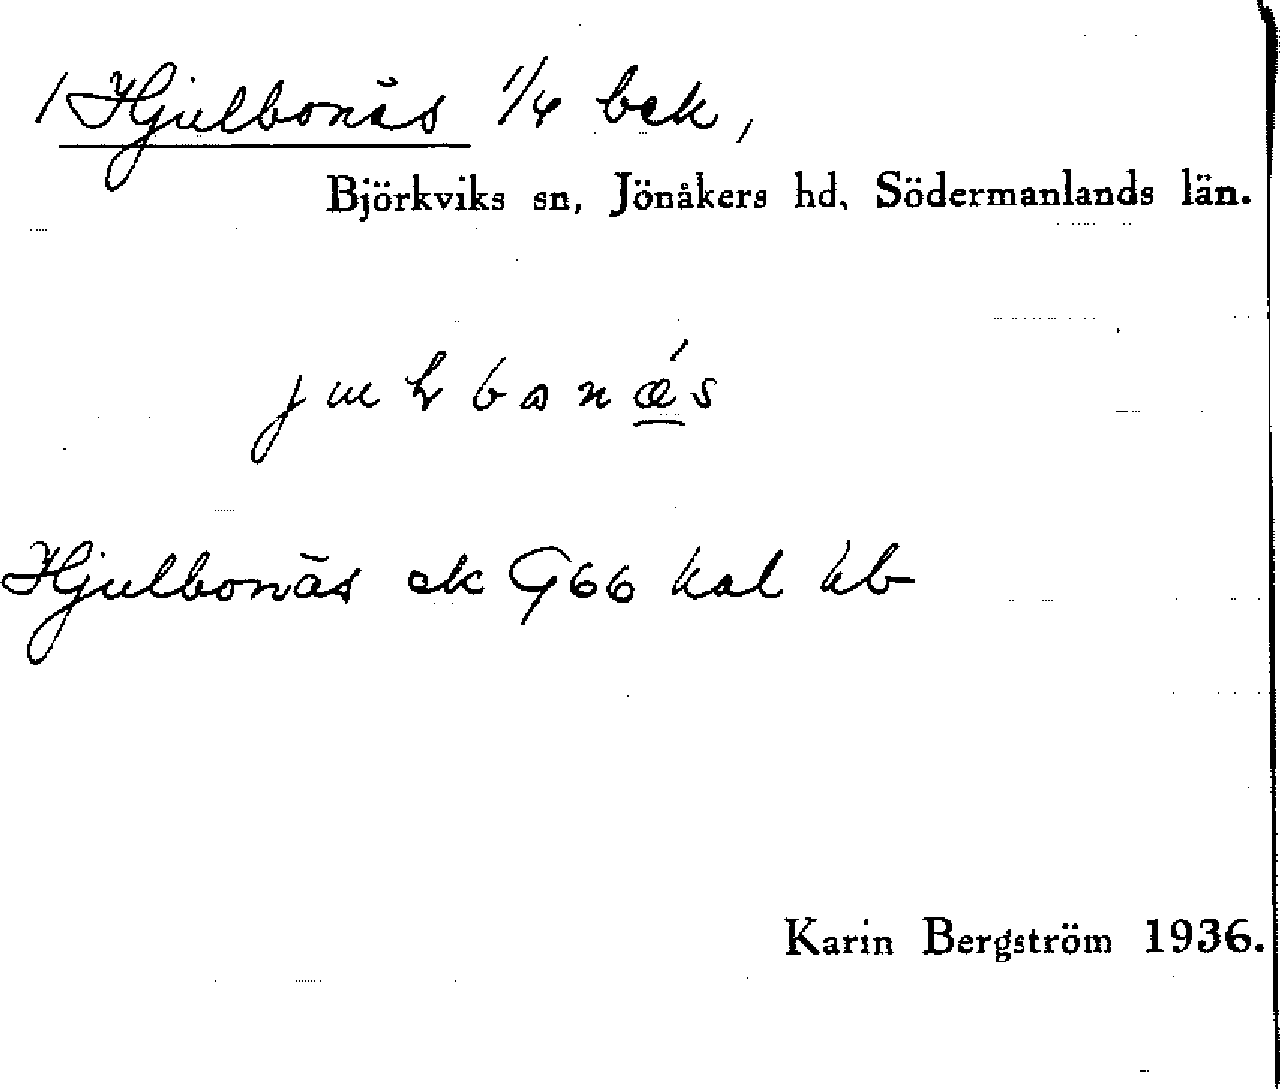 1 Hjulbonäs 1/4 bek,
Björkviks sn, Jönåkers hd, Södermanlands län.
Hjulbonäs ek G66 kal hb
Karin Bergström 1936.